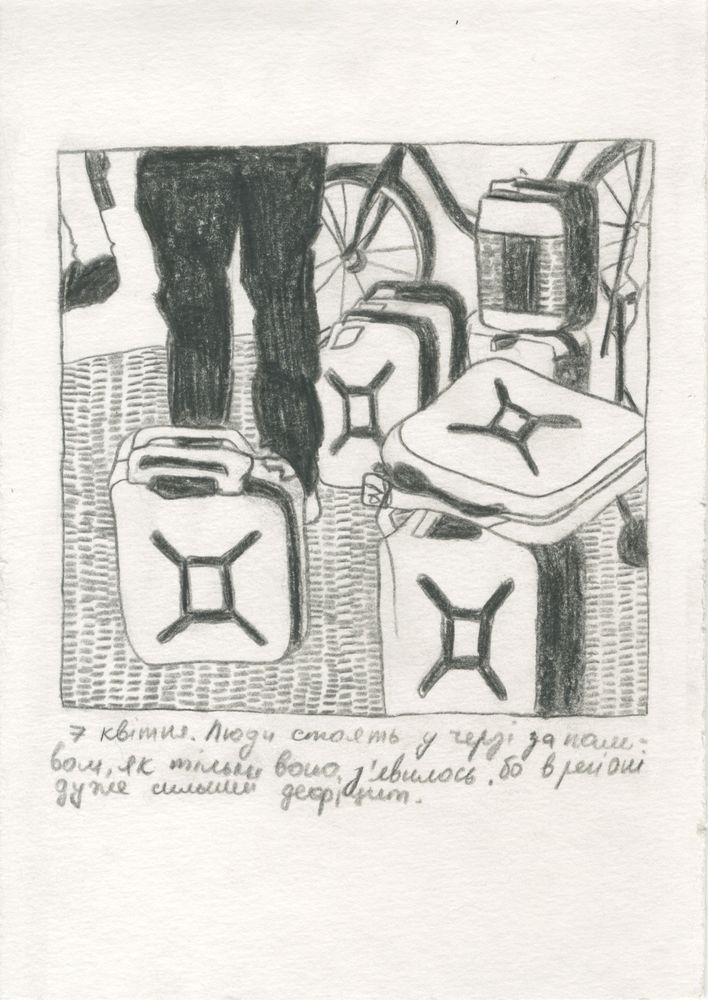 7 квітня. Люди стоять у черзі за пали-
вом, як тільки воно з'явилось, бо в регіоні
дуже сильний дефіцит.